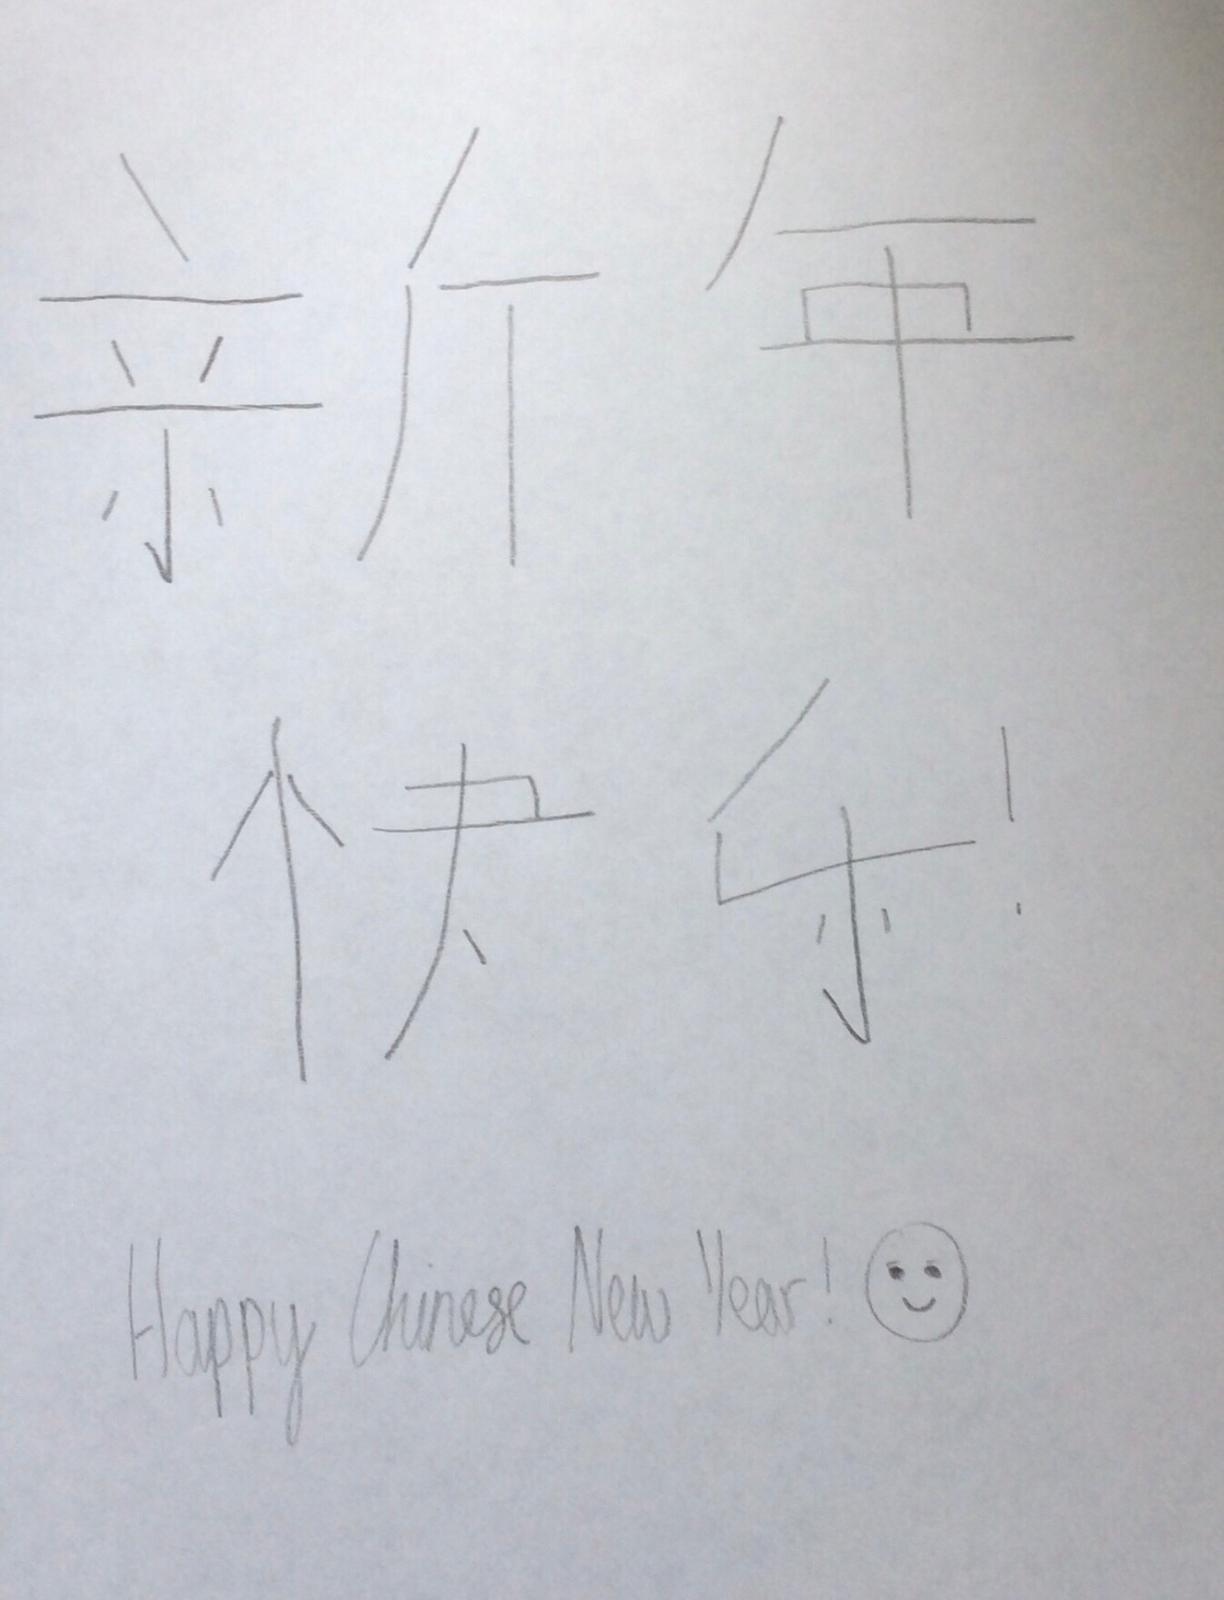 新年
快乐!
Happy Chinese New Year!